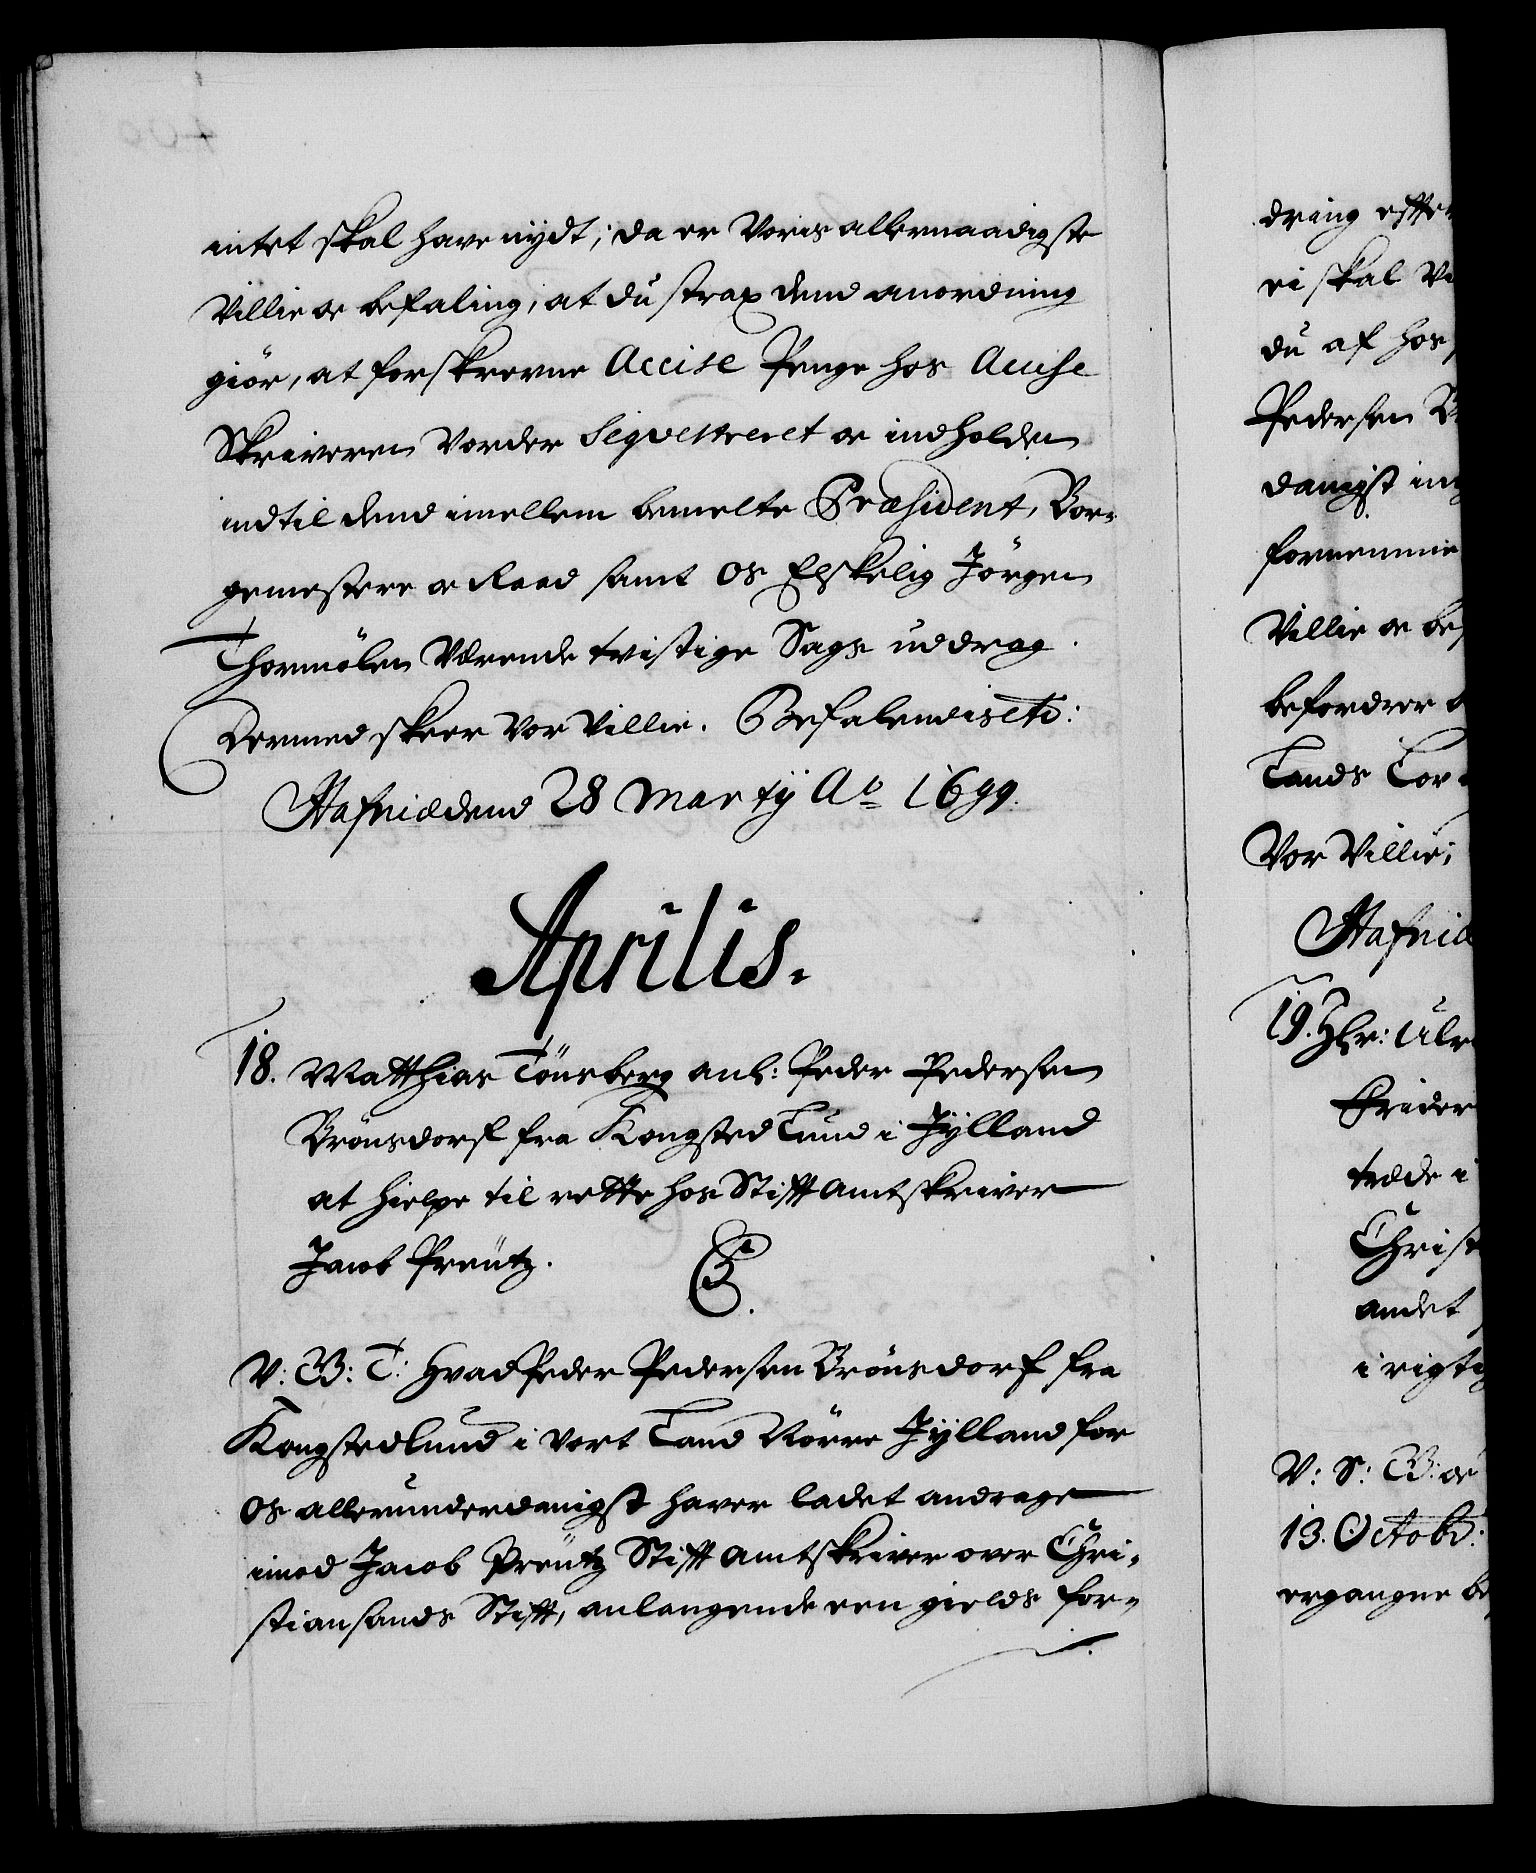 intet skal have nydt; da er Voris allernaadigste
Villie oc befaling, at du strax dend anordning
giör, at forskrevne Accise Penge hos Accise
Skriveren Vorder Seqvestreret oc indholden
indtil dend imellem bemelte Præsident, Bor-
gemestere oc Raad samt Os Elskelig Jörgen
Thormölen Værende tvistige Sags uddrag.
Dermed skeer Vor Villie. Befalendis etc:
Hafniæ dend 28 Martij Ao 1699.
Aprilis.
18. Matthias Tönsberg anl: Peder Pedersen
Brönsdorf fra Kongsted Lund i Jylland
at hielpe til rette hos Stifft amtskriver
Jacob Preütz.
C5.
V: G: T: Hvad Peder Pedersen Brönsdorf fra
Kongstedlund i Vort Land Nörre Jylland for
Os allerunderdanigst haver ladet andrage
imod Jacob Preütz Stifft amtskriver over Chri-
stiansands Stifft, anlangende een gields for-
dring effter
ei skal
du af hos
Pedersen
danigst
fornemme
Villie oc
befordrer
Lands Lov
Vor Villie;
Hafniæ
19. Hr: Ulr
Frider
træde i
Christ
andet
i rigtig
V: S: G: oc
13. Octobr:
ergangne